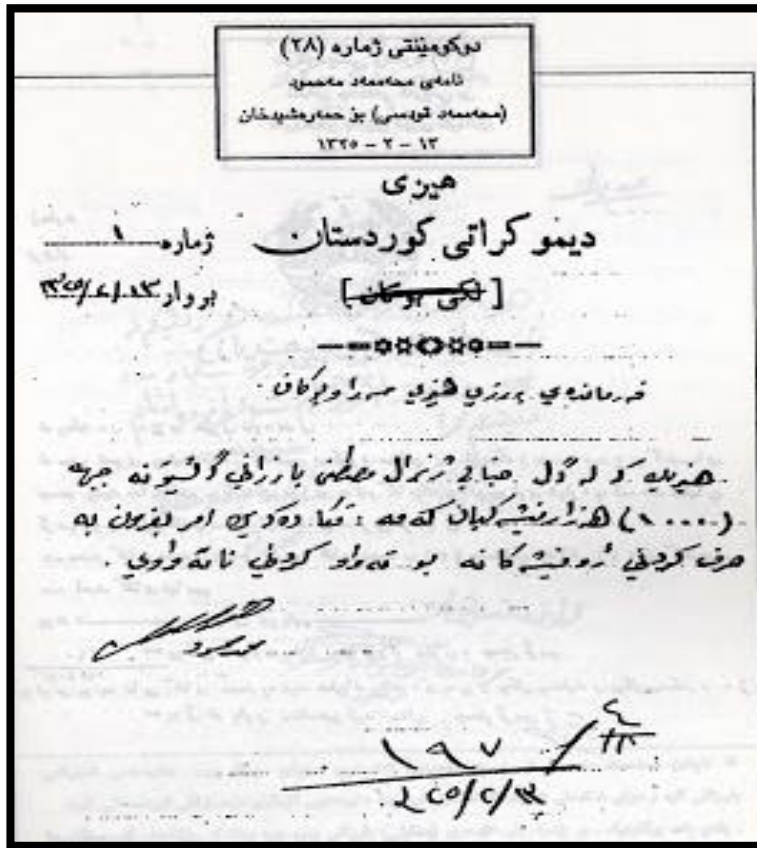 دوکومێنتی ژماره (٢٨)
نامەی محەممەد مەحمود
(محەممەد قودسی) بۆ حەمەرەشیدخان
١٣ – ٢ – ١٣٢٥
هیزی
دیموکراتی کوردستان
ژماره ١
[لکی بوکان]
بروار ١٣/٢/١٣٢٥
فەرماندەی بەرزی هێزی
هێزیك کە لە گەل جنابی ژنرال مصطفی بارزانی
(١٠٠٠٠) هەزار فیشەکیان کەمە : تکا دەکەم امر بفرمون بە
صرف کردنی ئەو فیشەکانە بو تەواو کردنی
محمد محمود
١٩٧